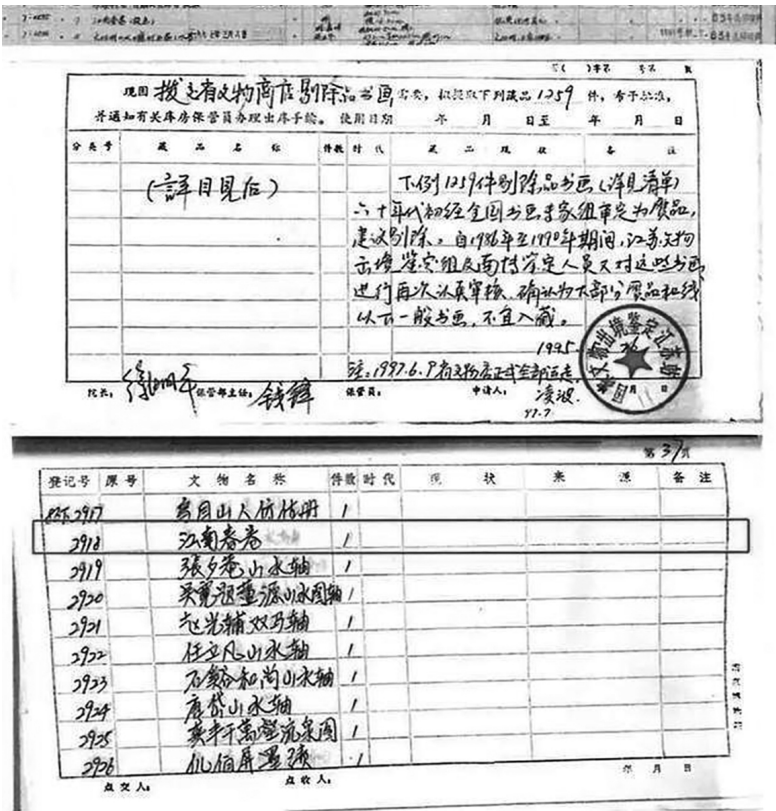 现因 拨交省文物商店剔除品书画 需要，拟提取下列藏品 1259 件，希予批准，
并通知有关库房保管员办理出库手续。 使用日期 年 月 日至 年 月 日
分类号 藏品名称 件数 时代 藏品现状 备注
(詳目見后)
下列1259件剔除品书画(详見清单)
六十年代初经全国书画专家组审定为贋品,
建议剔除。自1986年至1990年期间,江苏文物
出境鉴定组及南博鉴定人员又对这些书画
进行再次认真审核,确认为大部分贋品和线
以下一般书画,不宜入藏。
1995.
注:1997.6.9省文物店正式全部运走
院长： 徐湖平 保管部主任： 钱锋 保管员： 申请人： 凌波
97.7.
国家文物出境鉴定江苏站
第 37 页
登记号 原号 文物名称 件数 时代 现状 来源 备注
2917 仿古册 1
2918 江南春卷 1
2919 張夕菴山水轴 1
2920 吴寬题董源山水图轴 1
2921 赵光辅双马轴 1
2922 任立凡山水轴 1
2923 石谿和尚山水轴 1
2924 唐岱山水轴 1
2925 千萬壑流泉图 1
2926 1
点交人： 点收人： 年 月 日